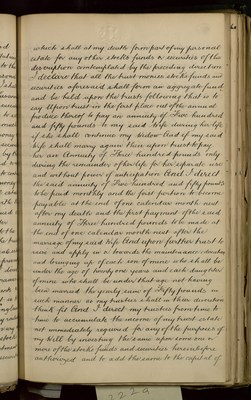 which shall at my death form part of my personal
estate for any other stocks funds or securities of the
description contemplated by the preceding direction
I declare that all the trust monies stocks funds and
securities aforesaid shall form an aggregate fund
and be held upon the trusts following that is to
say Upon trust in the first place out of the annual
produce thereof to pay an annuity of Five hundred
and fifty pounds to my said wife during her life
if she shall continue my widow And if my said
wife shall marry again then upon trust to pay
her an annuity of Three hundred pounds only
during the remainder of her life for her separate use
and without power of anticipation And I direct
the said annuity of Five hundred and fifty pounds
to be paid monthly and the first portion to become
payable at the end of one calendar month next
after my death and the first payment of the said
annuity of Three hundred pounds to be made at
the end of one calendar month next after the
marriage of my said wife And upon further trust to
raise and apply in or towards the maintenance
and bringing up of each son of mine who shall be
under the age of twenty one years and each daughter
of mine who shall be under that age not having
been married the yearly sum of Fifty pounds in
such manner as my trustees shall in their discretion
think fit And I direct my trustees from time to
time to accumulate the income of my trust estate
not immediately required for any of the purposes of
my Will by investing the same upon some one or
more of the stocks funds and securities hereinbefore
authorized and to add the same to the capital of